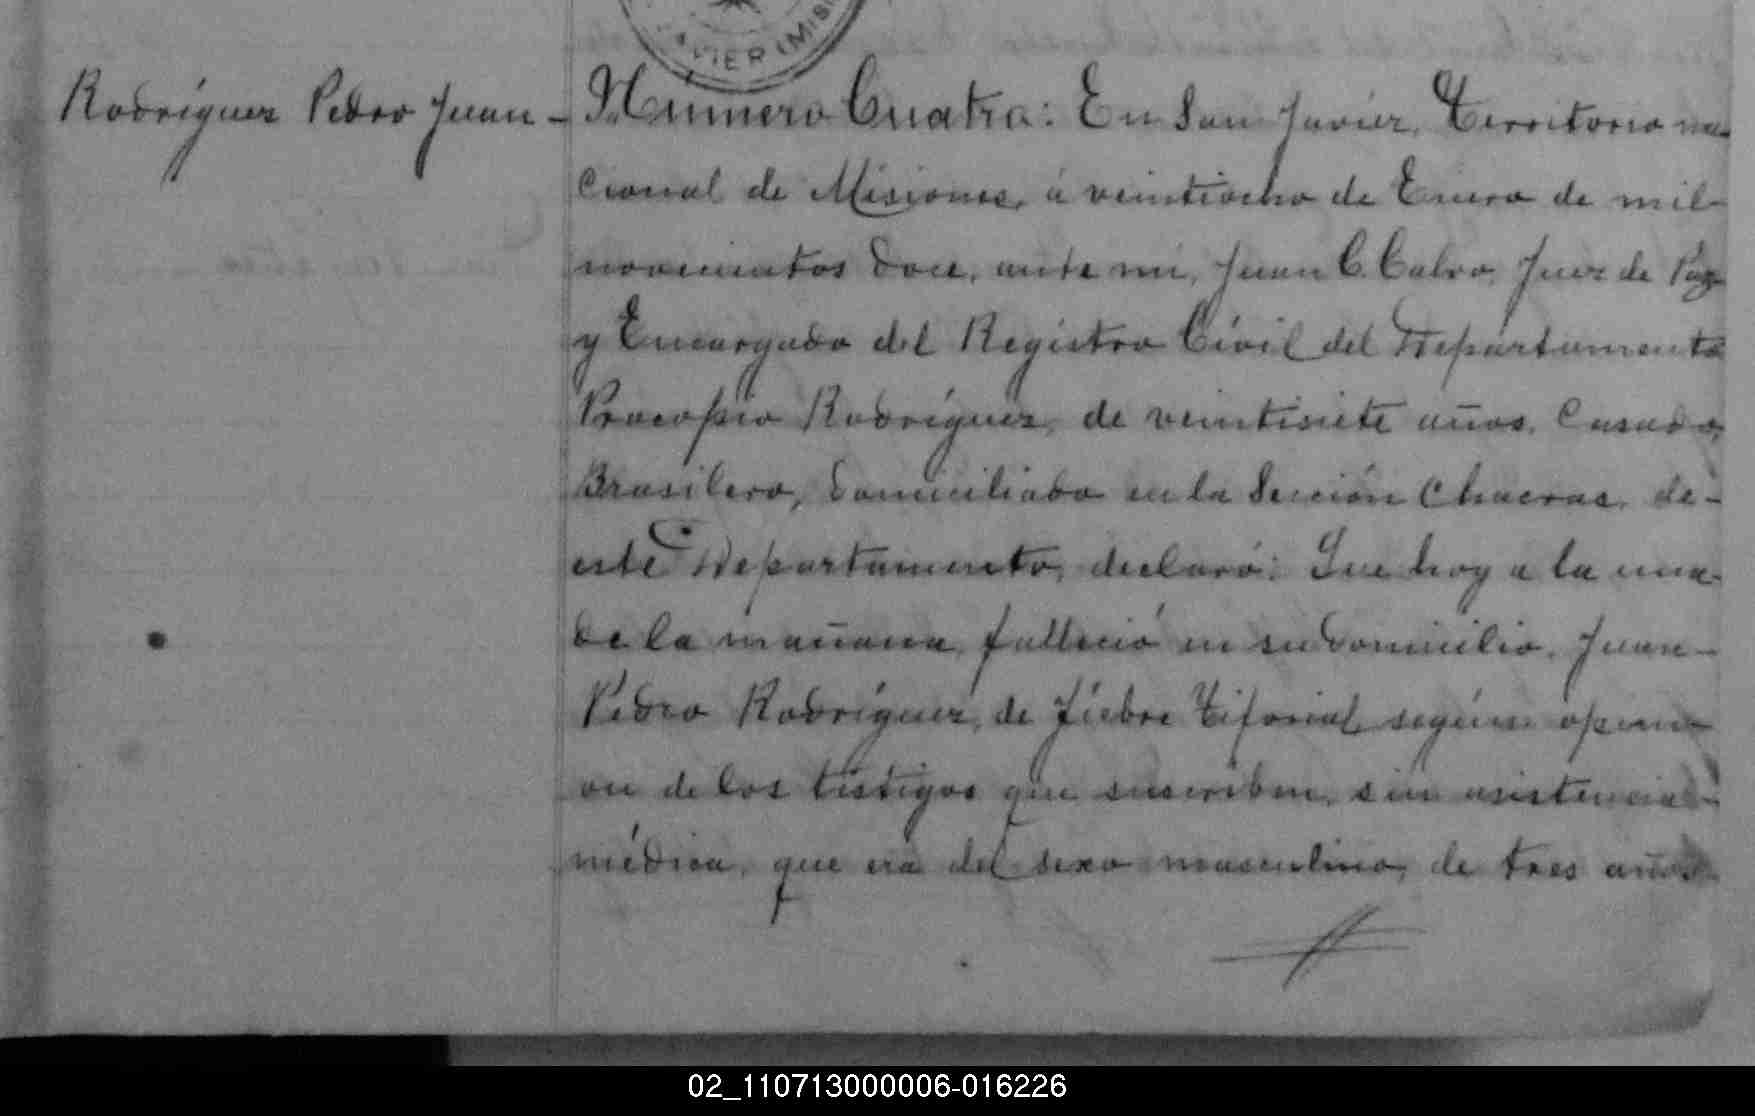 JAVIER (MISI
Rodríguez Pedro Juan -
Número Cuatro: En San Javier, Territorio na-
cional de Misiones, á veintiocho de Enero de mil
novecientos doce, ante mi, Juan C. Calvo, Juez de Paz
y Encargado del Registro Civil del Departamento
Procopio Rodríguez, de veintisiete años, Casado,
Brasilero, domiciliado en la Sección Chacras, de-
este Departamento, declaró: Que hoy a la una-
de la mañana, falleció en su domicilio, Juan-
Pedro Rodríguez, de fiebre tiforial, según opini-
on de los testigos que suscriben, sin asistencia-
médica, que era del sexo masculino, de tres años
02_110713000006-016226